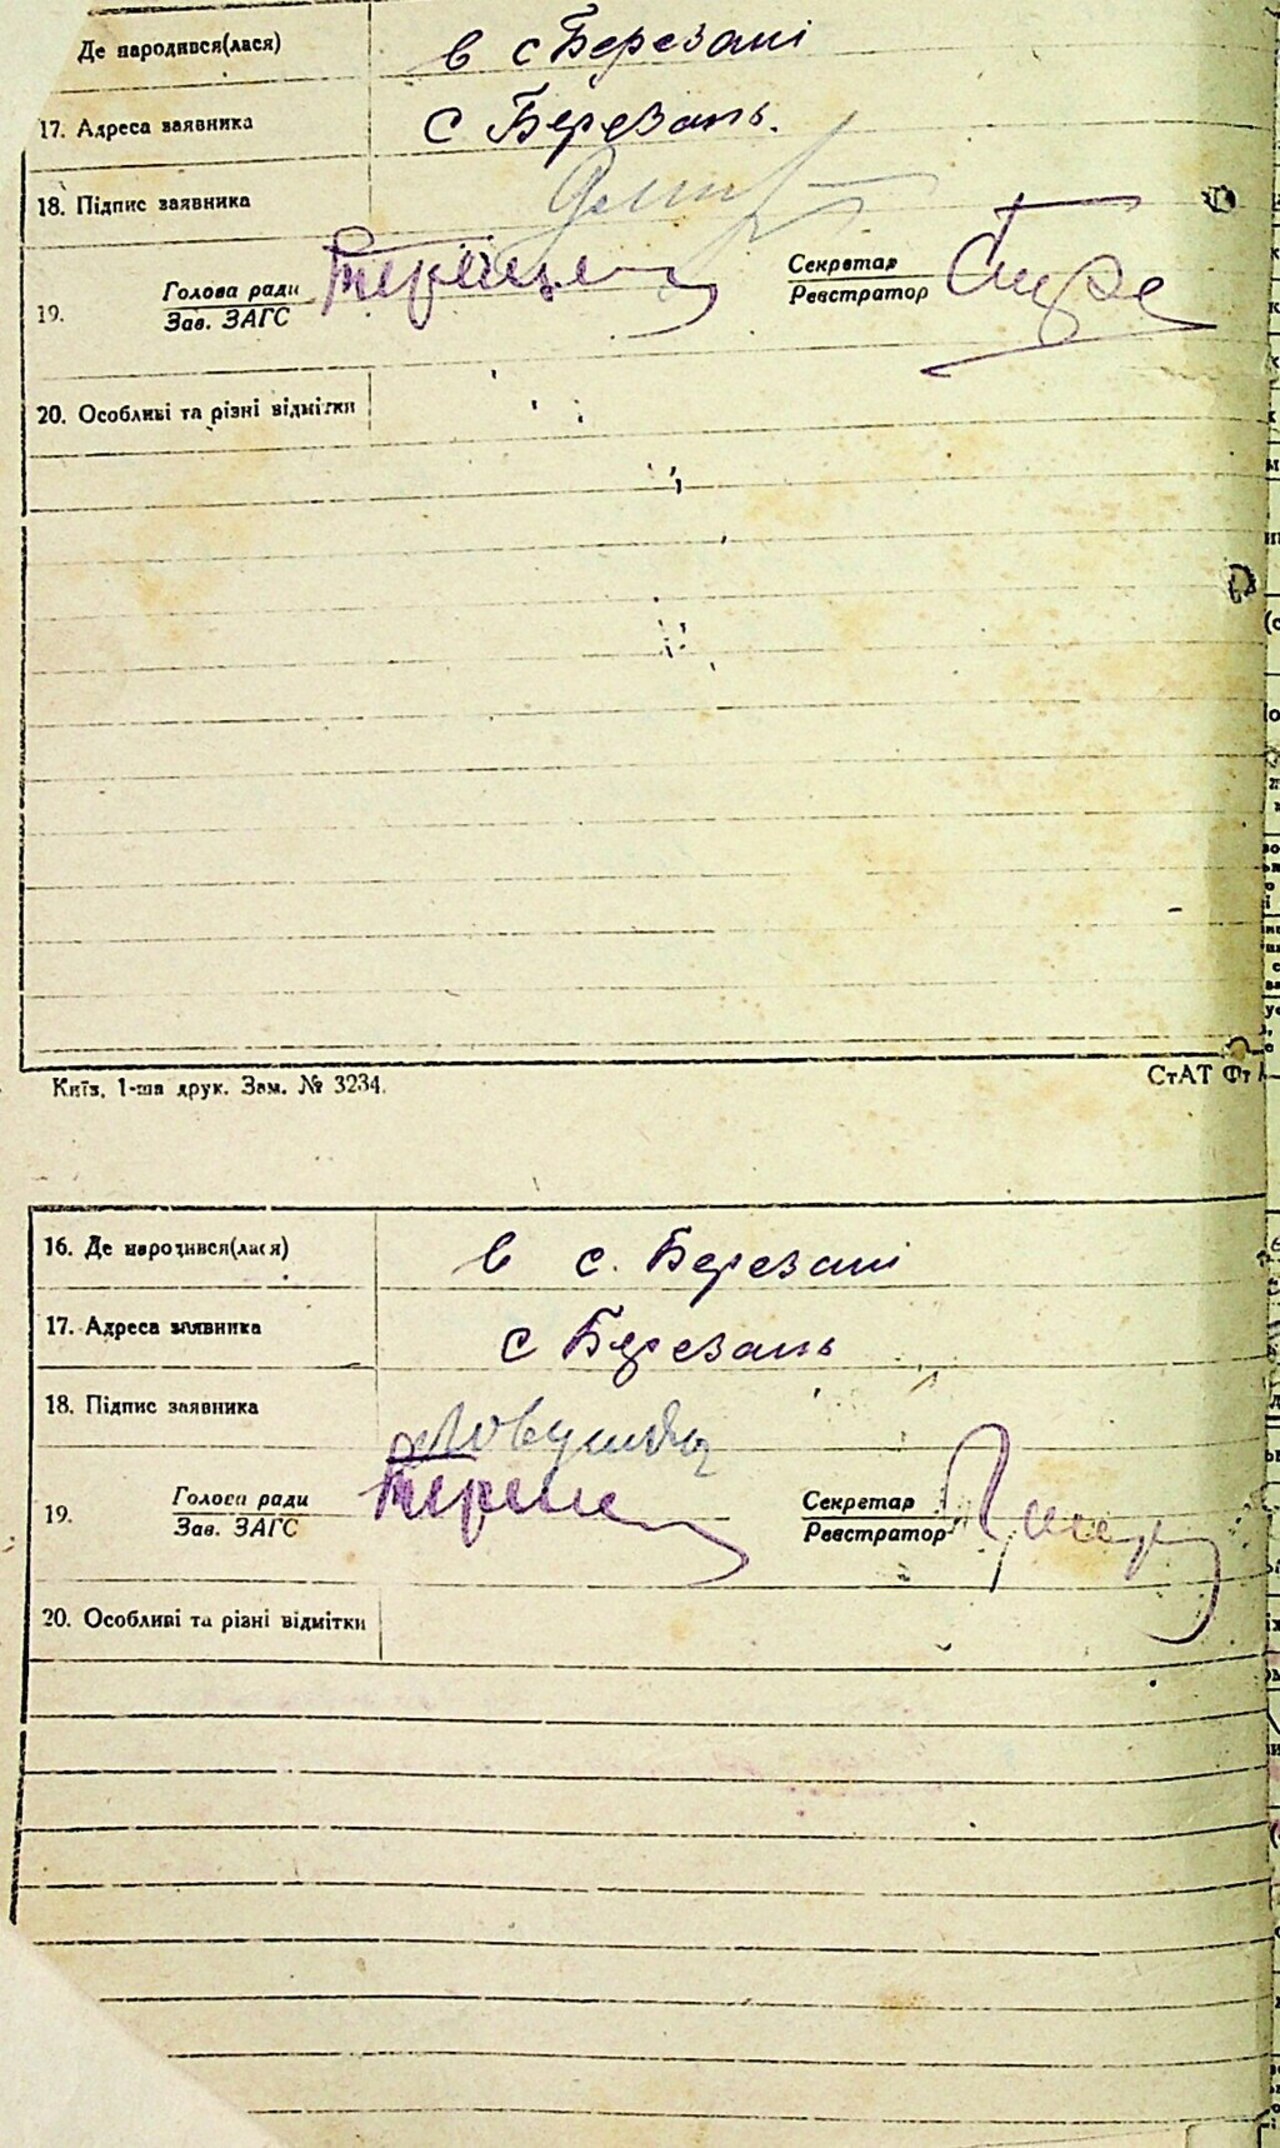 Де народився(лася) в с Березані
17. Адреса заявника с Березань.
18. Підпис заявника
19. Голова ради
Зав. ЗАГС
Секретар
Реєстратор
20. Особливі та різні відмітки
Київ, 1-ша друк. Зам. № 3234.
СтАТ Фт
16. Де народився(лася) в с. Березані
17. Адреса заявника с Березань
18. Підпис заявника
19. Голова ради
Зав. ЗАГС
Секретар
Реєстратор
20. Особливі та різні відмітки